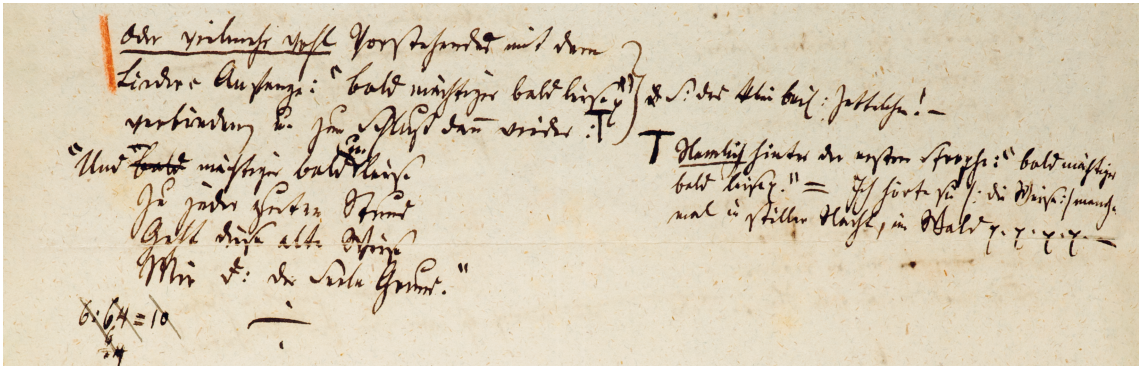 Oder vielleicht wohl Vorstehendes mit dem
Liedes Anfange: "bald mächtiger bald leise p."
verbinden, u. zum Schluß dann wieder :T
"Und bald mächtiger bald leise
Zu jeder guten Stund
Geht diese alte Weise
Mir d: der Seele Grund."
6:64=10
S: das bei Zettelchen! –
T Nemlich hinter der ersten Strophe: "bald mächtiger
bald leise p." = Ich hörte sie /: die Weise :/ manch-
mal in stiller Nacht, im Wald p. p. p. p. –